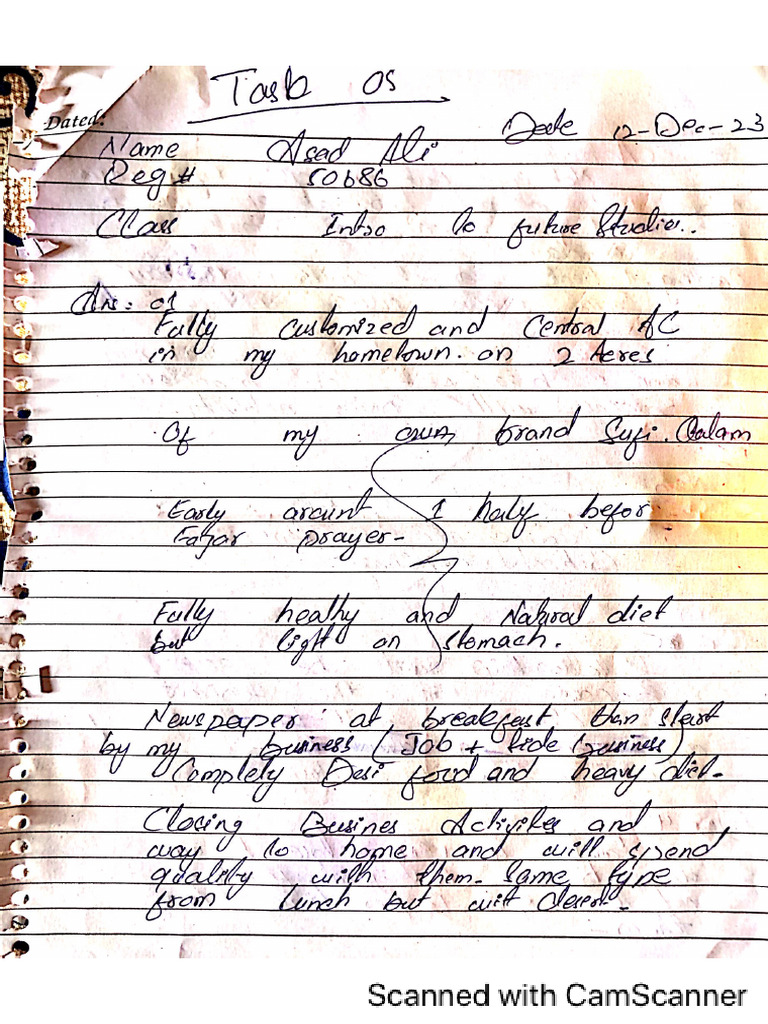 Task 05
Dated:
Date 12-Dec-23
Name Asad Ali
Reg # 50686
Class Intro to future Studies..
Ans: 01
Fully customized and Central AC
in my hometown. on 2 Acres
Of my own brand Sufi. Qalam
Early arount 1 half befor
Fajar prayer-
Fully healhy and Natural diet
but light on stomach.
Newspaper at breakfast than start
by my business (Job + side business)
Completely Desi food and heavy diet-
Closing Busines Activites and
way to home and will spend
quality with them. Same type
from lunch but wit desert-
Scanned with CamScanner